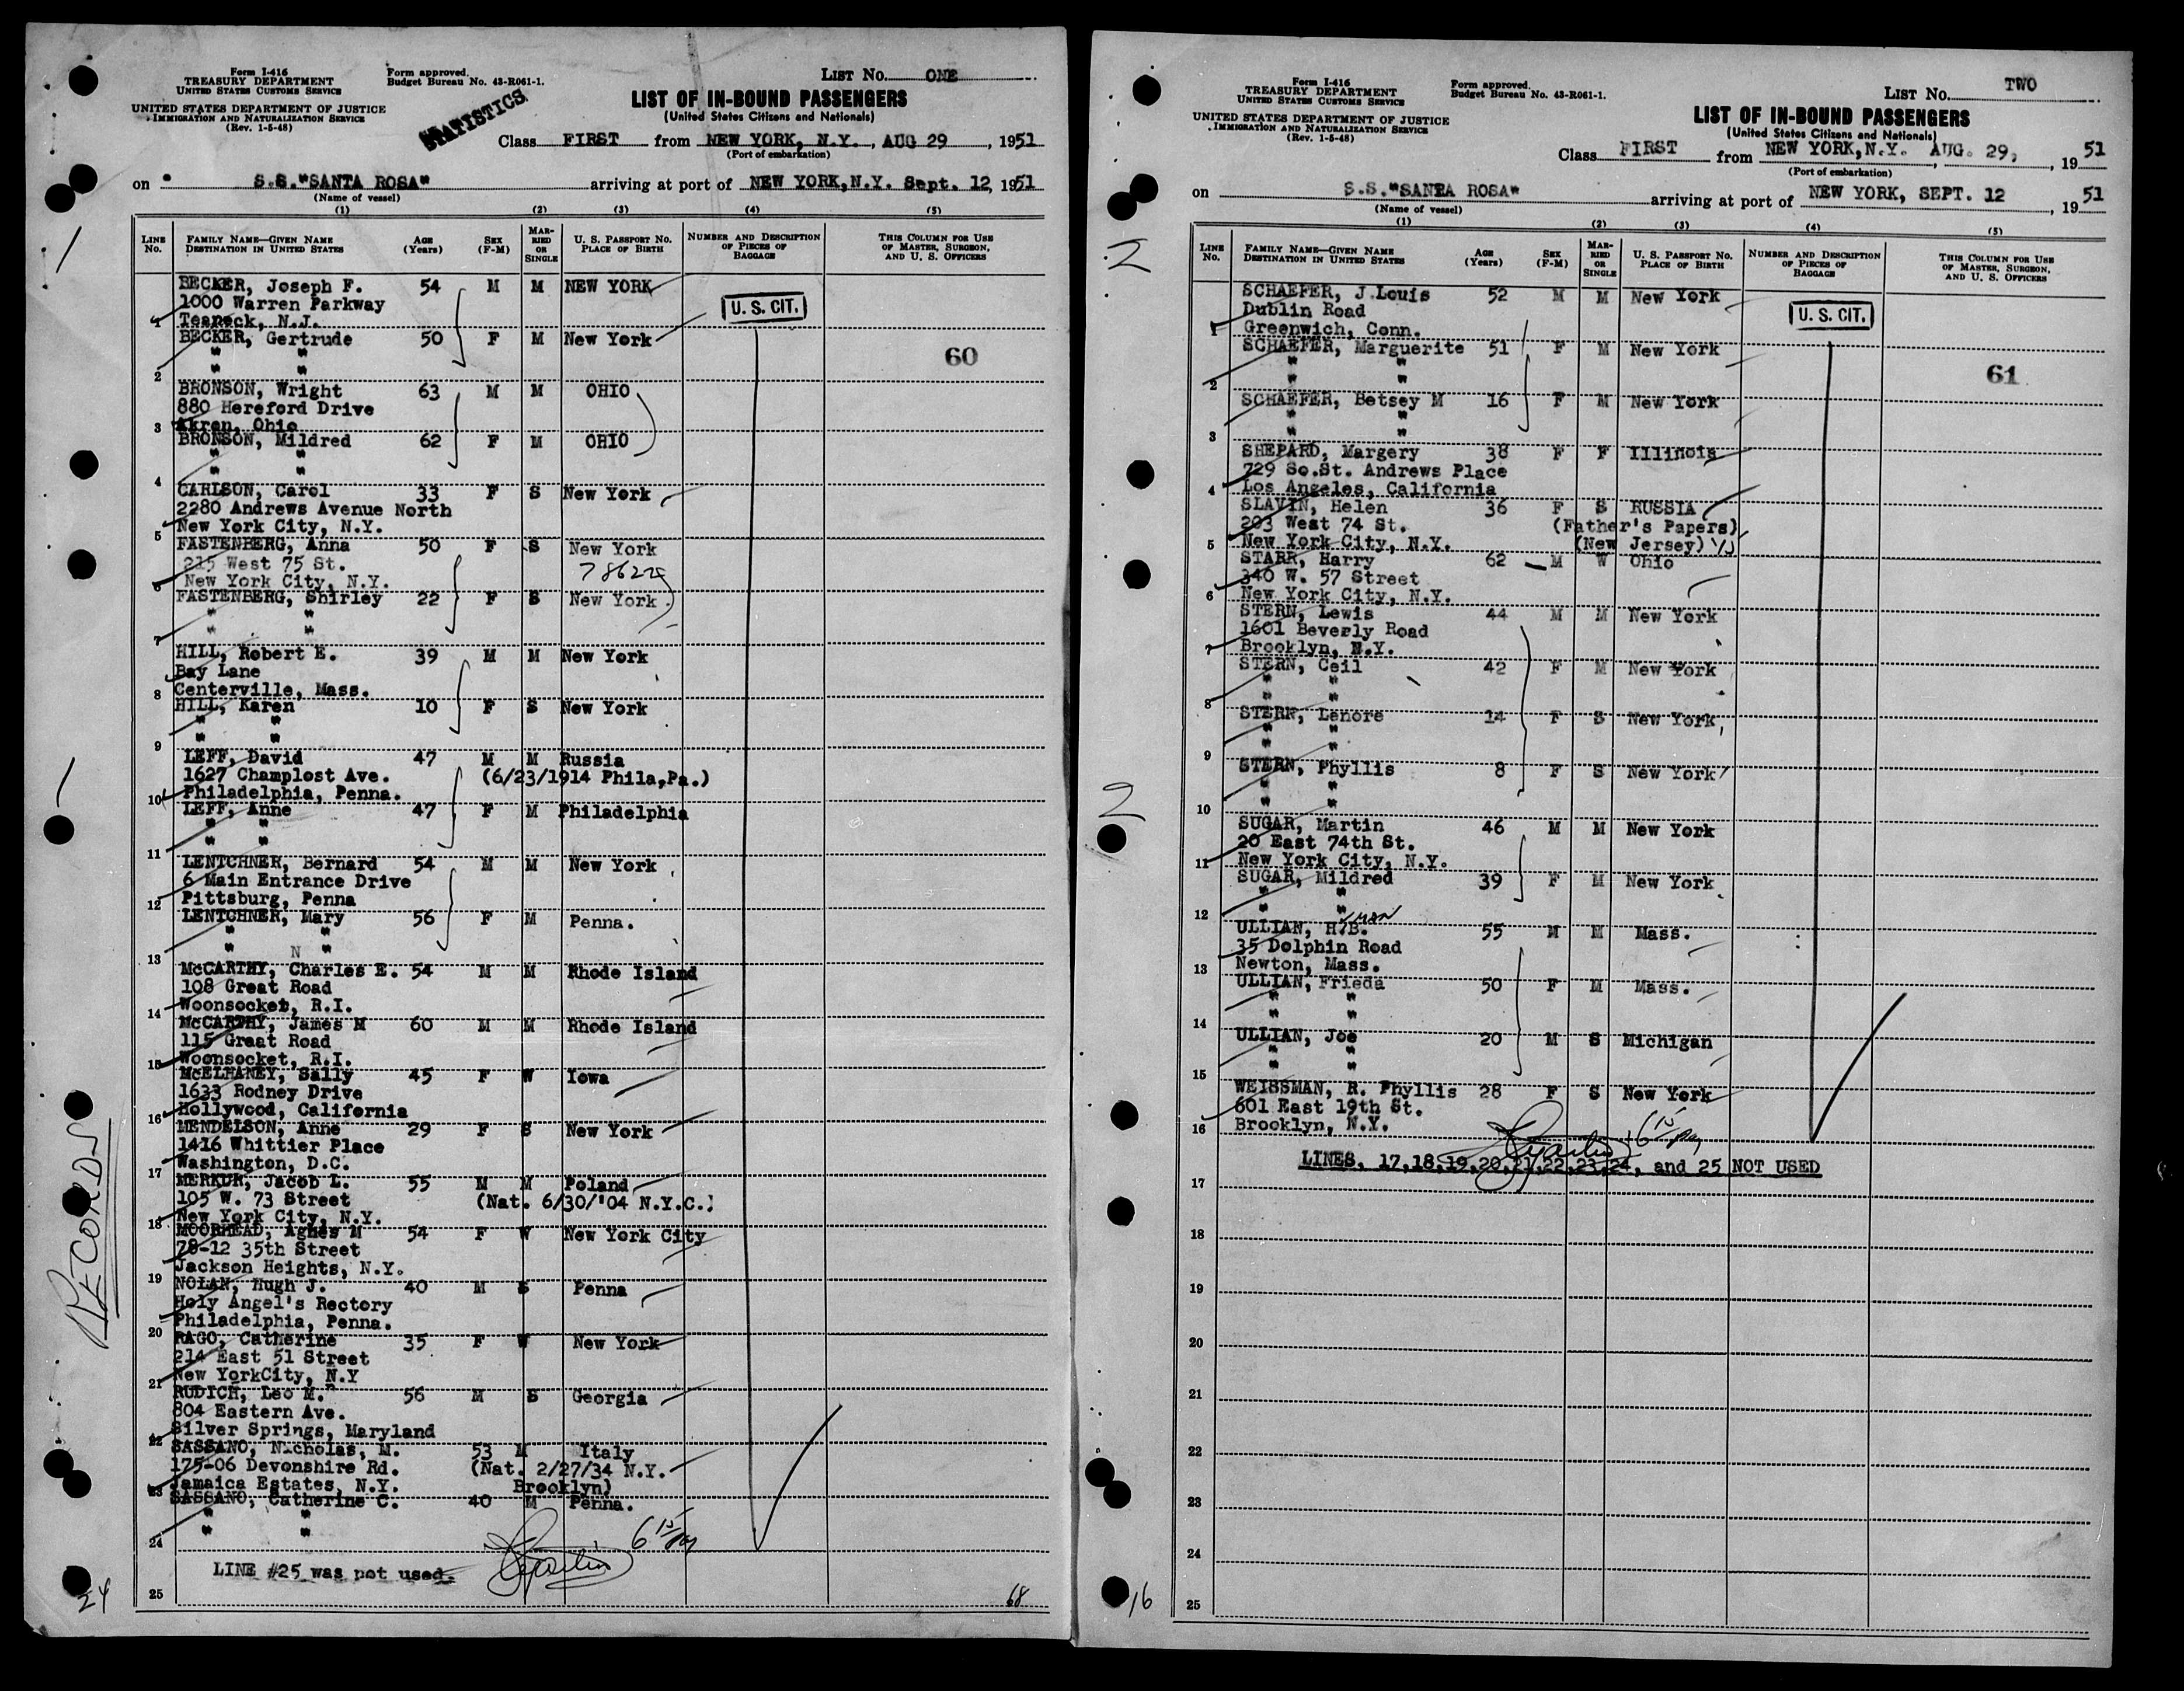 Form I-416
TREASURY DEPARTMENT
UNITED STATES CUSTOMS SERVICE
UNITED STATES DEPARTMENT OF JUSTICE
IMMIGRATION AND NATURALIZATION SERVICE
(Rev. 1-5-48)
Form approved.
Budget Bureau No. 43-R061-1.
STATISTICS
LIST NO. ONE
LIST OF IN-BOUND PASSENGERS
(United States Citizens and Nationals)
Class FIRST from NEW YORK, N.Y., AUG 29, 1951
(Port of embarkation)
on S.S."SANTA ROSA" arriving at port of NEW YORK,N.Y. Sept. 12, 1951
(Name of vessel)
(1) (2) (3) (4) (5)
LINE NO. FAMILY NAME—GIVEN NAME DESTINATION IN UNITED STATES AGE (Years) SEX (F-M) MARRIED OR SINGLE U. S. PASSPORT NO. PLACE OF BIRTH NUMBER AND DESCRIPTION OF PIECES OF BAGGAGE THIS COLUMN FOR USE OF MASTER, SURGEON, AND U. S. OFFICERS
BECKER, Joseph F. 54 M M NEW YORK
1000 Warren Parkway
1 Teaneck, N.J.
U. S. CIT.
BECKER, Gertrude 50 F M New York
" "
2 " "
60
BRONSON, Wright 63 M M OHIO
880 Hereford Drive
3 Akron, Ohio
BRONSON, Mildred 62 F M OHIO
" "
4 " "
CARLSON, Carol 33 F S New York
2280 Andrews Avenue North
5 New York City, N.Y.
FASTENBERG, Anna 50 F S New York
215 West 75 St.
6 New York City, N.Y.
FASTENBERG, Shirley 22 F S New York
" "
7 " "
HILL, Robert E. 39 M M New York
Bay Lane
8 Centerville, Mass.
HILL, Karen 10 F S New York
" "
9 " "
LEFF, David 47 M M Russia
1627 Champlost Ave. (6/23/1914 Phila,Pa.)
10 Philadelphia, Penna.
LEFF, Anne 47 F M Philadelphia
" "
11 " "
LENTCHNER, Bernard 54 M M New York
6 Main Entrance Drive
12 Pittsburg, Penna
LENTCHNER, Mary 56 F M Penna.
" "
13 " N "
McCARTHY, Charles E. 54 M M Rhode Island
108 Great Road
14 Woonsocket, R.I.
McCARTHY, James M 60 M M Rhode Island
115 Great Road
15 Woonsocket, R.I.
McELHANEY, Sally 45 F W Iowa
1633 Rodney Drive
16 Hollywood, California
MENDELSON, Anne 29 F S New York
1416 Whittier Place
17 Washington, D.C.
MERKUR, Jacob L. 55 M M Poland
105 W. 73 Street (Nat. 6/30/'04 N.Y.C.)
18 New York City, N.Y.
MOORHEAD, Agnes M 54 F W New York City
78-12 35th Street
19 Jackson Heights, N.Y.
NOLAN, Hugh J. 40 M S Penna
Holy Angel's Rectory
20 Philadelphia, Penna.
RAGO, Catherine 35 F W New York
214 East 51 Street
21 New YorkCity, N.Y
RUDICH, Leo M. 56 M S Georgia
804 Eastern Ave.
22 Silver Springs, Maryland
SASSANO, Nicholas, M. 53 M Italy
175-06 Devonshire Rd. (Nat. 2/27/34 N.Y.
23 Jamaica Estates, N.Y. Brooklyn)
SASSANO, Catherine C. 40 M Penna.
" "
24 " "
6 15 pm
LINE #25 was not used.
25
68
RECORDS
24
Form I-416
TREASURY DEPARTMENT
UNITED STATES CUSTOMS SERVICE
UNITED STATES DEPARTMENT OF JUSTICE
IMMIGRATION AND NATURALIZATION SERVICE
(Rev. 1-5-48)
Form approved.
Budget Bureau No. 43-R061-1.
LIST NO. TWO
LIST OF IN-BOUND PASSENGERS
(United States Citizens and Nationals)
Class FIRST from NEW YORK,N.Y. AUG. 29, 1951
(Port of embarkation)
on S.S."SANTA ROSA" arriving at port of NEW YORK, SEPT. 12, 1951
(Name of vessel)
(1) (2) (3) (4) (5)
LINE NO. FAMILY NAME—GIVEN NAME DESTINATION IN UNITED STATES AGE (Years) SEX (F-M) MARRIED OR SINGLE U. S. PASSPORT NO. PLACE OF BIRTH NUMBER AND DESCRIPTION OF PIECES OF BAGGAGE THIS COLUMN FOR USE OF MASTER, SURGEON, AND U. S. OFFICERS
SCHAEFER, J Louis 52 M M New York
Dublin Road
1 Greenwich, Conn.
U. S. CIT.
SCHAEFER, Marguerite 51 F M New York
" "
2 " "
61
SCHAEFER, Betsey M 16 F M New York
" "
3 " "
SHEPARD, Margery 38 F F Illinois
729 So.St. Andrews Place
4 Los Angeles, California
SLAVIN, Helen 36 F S RUSSIA
203 West 74 St. (Father's Papers)
5 New York City, N.Y. (New Jersey)
STARR, Harry 62 M W Ohio
340 W. 57 Street
6 New York City, N.Y.
STERN, Lewis 44 M M New York
1601 Beverly Road
7 Brooklyn, N.Y.
STERN, Ceil 42 F M New York
" "
8 " "
STERN, Lenore 14 F S New York
" "
9 " "
STERN, Phyllis 8 F S New York
" "
10 " "
SUGAR, Martin 46 M M New York
20 East 74th St.
11 New York City, N.Y.
SUGAR, Mildred 39 F M New York
" "
12 " "
ULLIAN, H.B. 55 M M Mass.
35 Dolphin Road
13 Newton, Mass.
ULLIAN, Frieda 50 F M Mass.
" "
14 " "
ULLIAN, Joe 20 M S Michigan
" "
15 " "
WEISSMAN, R. Phyllis 28 F S New York
601 East 19th St.
16 Brooklyn, N.Y.
6 15 pm
LINES, 17,18,19,20,21,22,23,24, and 25 NOT USED
17
18
19
20
21
22
23
24
25
16